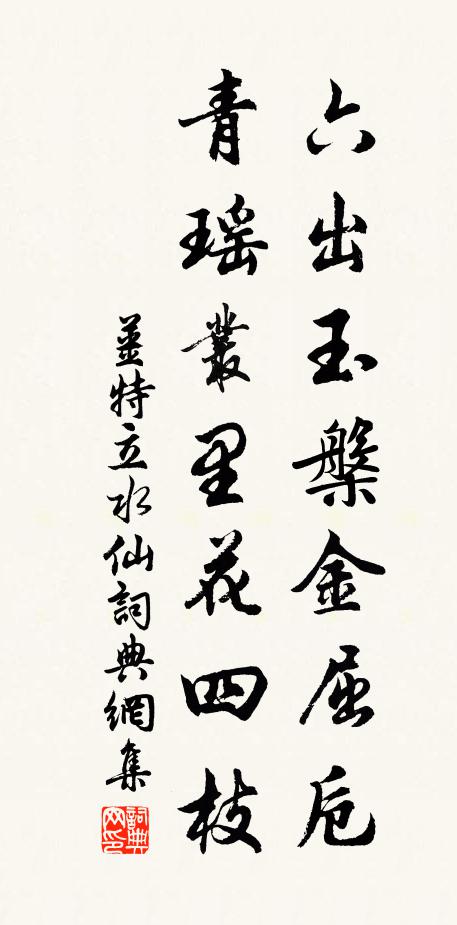 六出玉槃金屈卮
青瑶叢里花四枝
薑特立水仙詞典網集
詞典網印